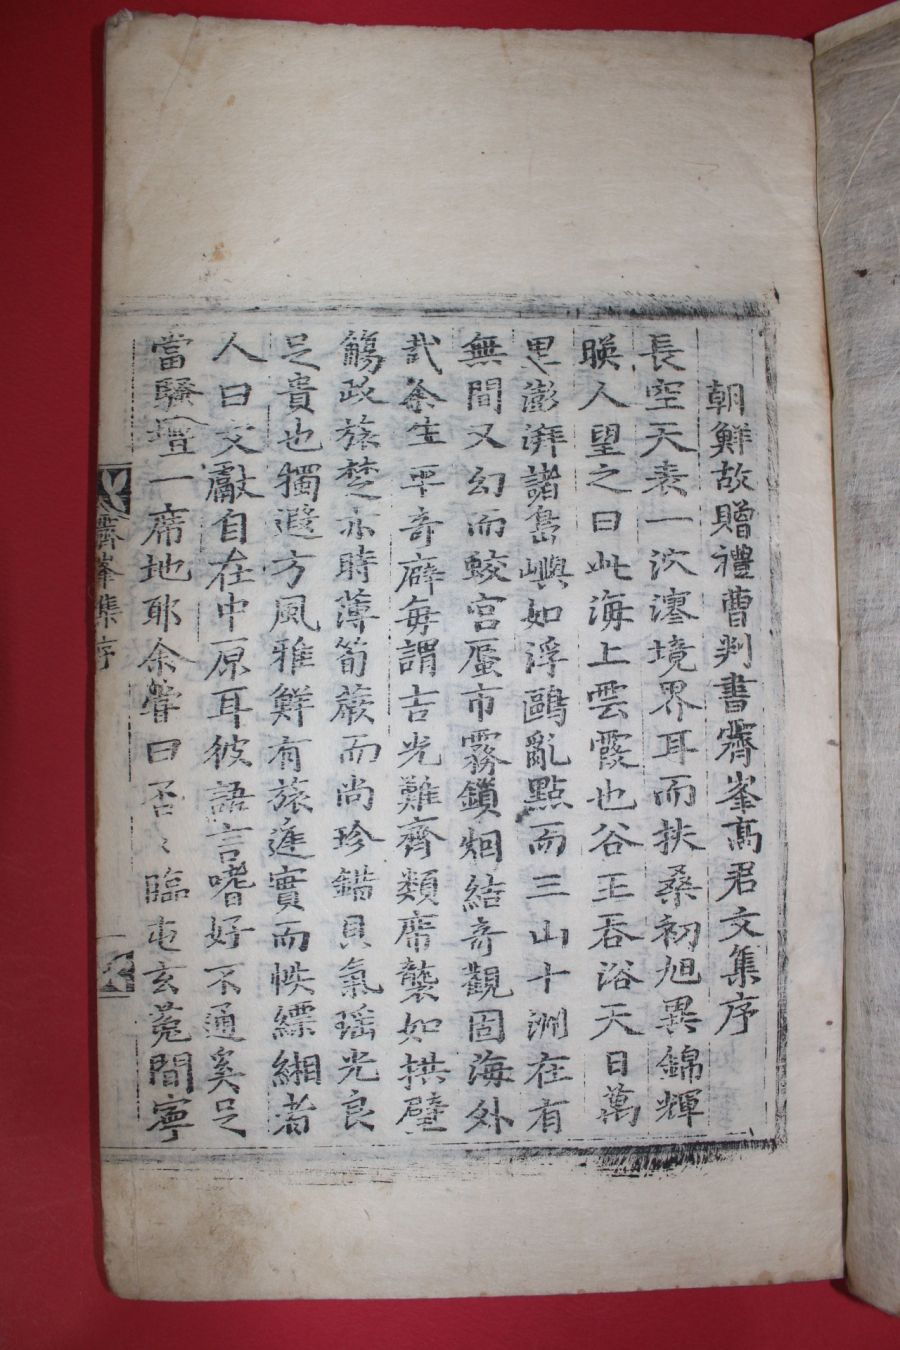 朝鮮故贈禮曹判書霽峯高君文集序
長空天表一泬漻境界耳而扶桑初旭異錦輝
暎人望之曰此海上雲霞也谷王吞浴天日萬
里澎湃諸島嶼如浮鷗亂點而三山十洲在有
無間又幻而蛟宮蜃市霧鎖烟結奇觀固海外
哉余生平奇癖每謂吉光難齊類席襲如拱璧
觴政旅楚亦時薄筍蕨而尚珍錯貝氣瑤光良
足貴也獨遐方風雅鮮有旅進實而帙縹緗者
人曰文獻自在中原耳彼語言嗜好不通奚足
當騷壇一席地耶余嘗曰否〻臨屯玄菟間寧
霽峯集序
一